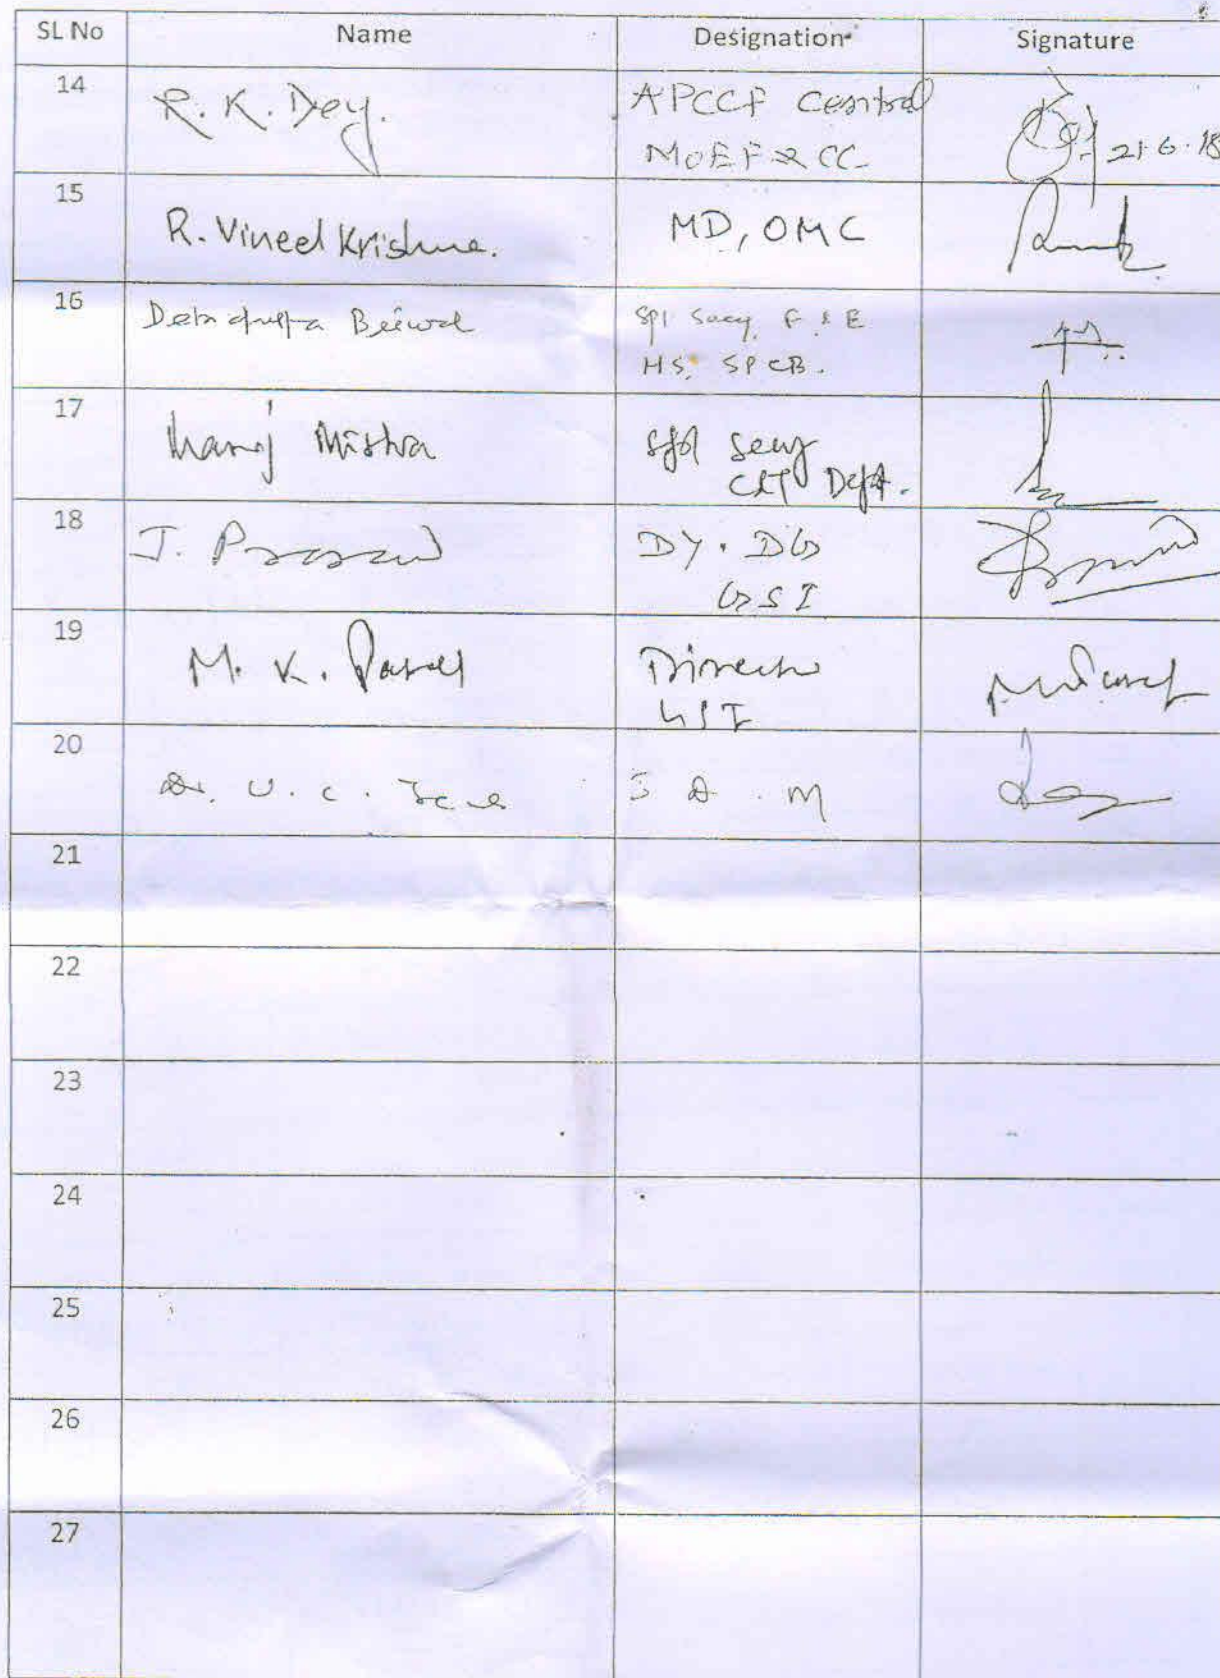 SL No Name Designation Signature
14 R. K. Dey. APCCF Central
MOEF & CC. 21.6.18
15 R. Vineel Krishna. MD, OMC
16 Spl Secy, F & E
MS, SPCB.
17 Manoj Mishra Spl Secy
Dept.
18 J. Prasad DY. DG
GSI
19 M. K. Director
GSI
20 Dr. U. C. Jena
21
22
23
24
25
26
27